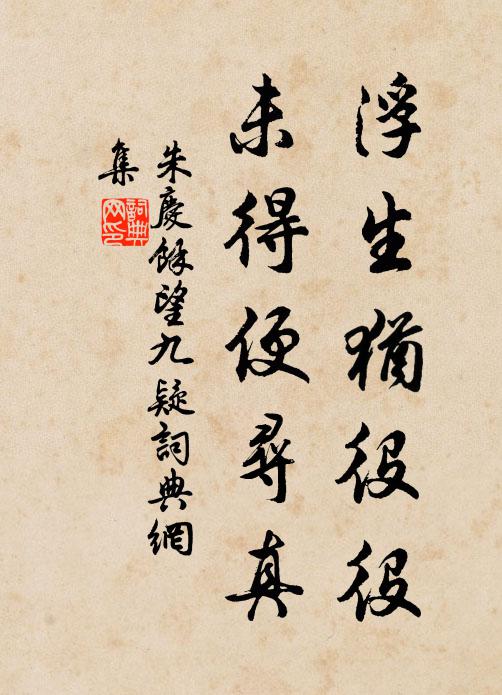 浮生猶役役
未得便尋真
朱慶餘望九疑詞典網
集
詞典
网印